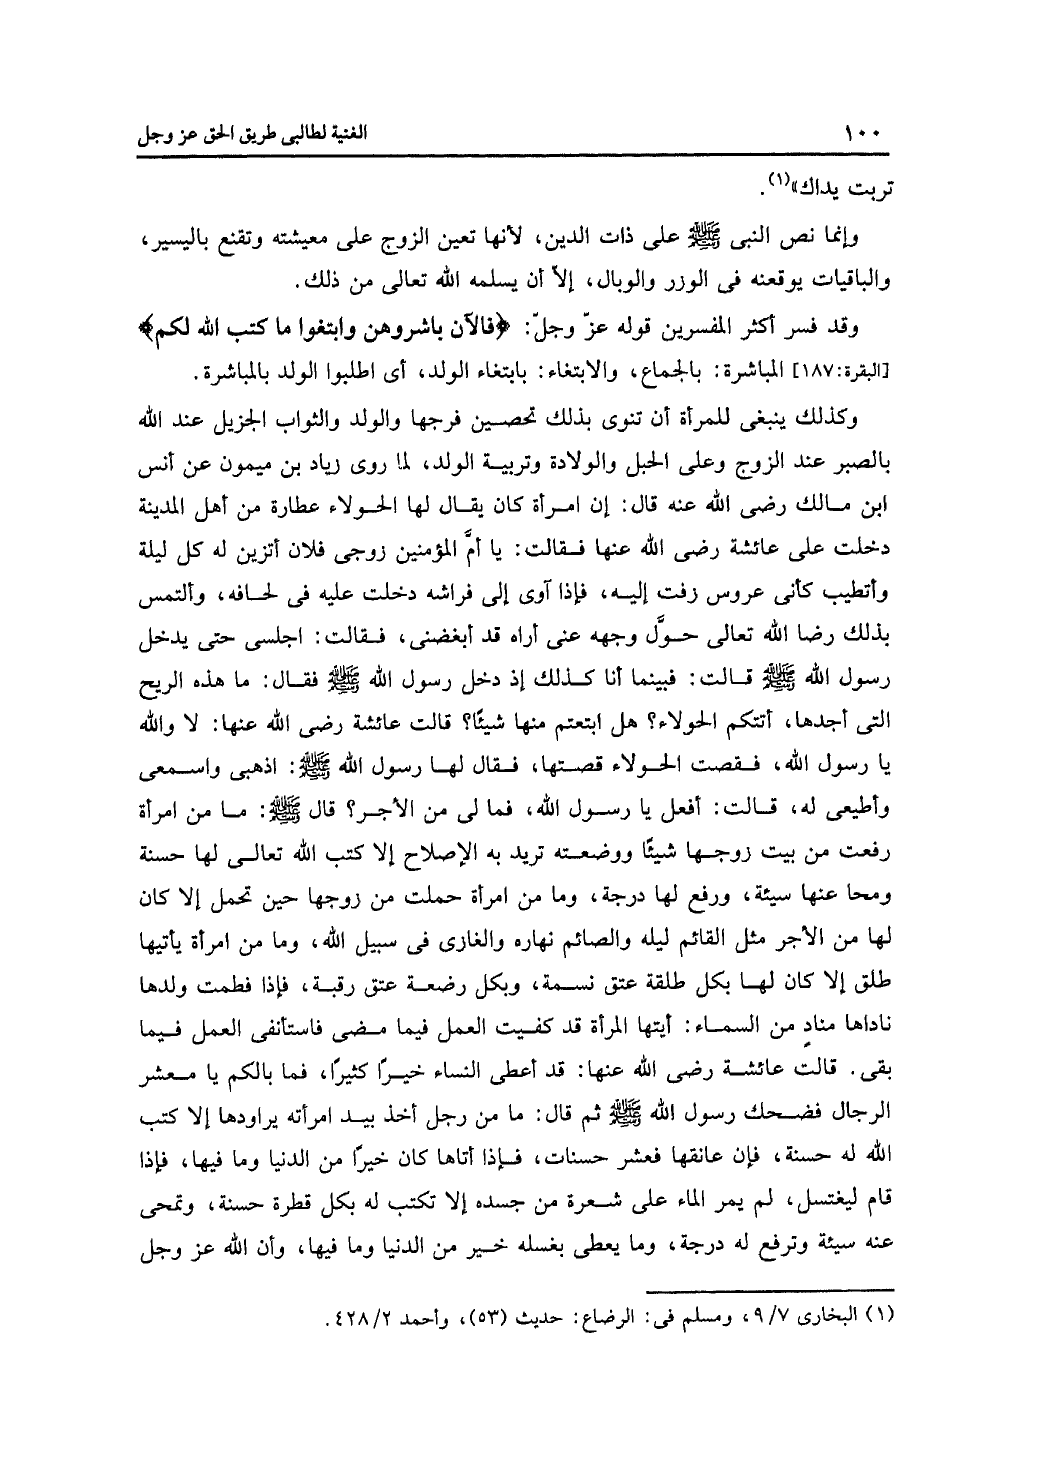 ١٠٠ الغنية لطالبى طريق الحق عز وجل
تربت يداك»(١).
وإنما نص النبى ﷺ على ذات الدين، لأنها تعين الزوج على معيشته وتقنع باليسير،
والباقيات يوقعنه فى الوزر والوبال، إلاّ أن يسلمه الله تعالى من ذلك.
وقد فسر أكثر المفسرين قوله عزّ وجلّ: ﴿فالآن باشروهن وابتغوا ما كتب الله لكم﴾
[البقرة:١٨٧] المباشرة: بالجماع، والابتغاء: بابتغاء الولد، أى اطلبوا الولد بالمباشرة.
وكذلك ينبغى للمرأة أن تنوى بذلك تحصين فرجها والولد والثواب الجزيل عند الله
بالصبر عند الزوج وعلى الحبل والولادة وتربية الولد، لما روى زياد بن ميمون عن أنس
ابن مالك رضى الله عنه قال: إن امرأة كان يقال لها الحولاء عطارة من أهل المدينة
دخلت على عائشة رضى الله عنها فقالت: يا أمَّ المؤمنين زوجى فلان أتزين له كل ليلة
وأتطيب كأنى عروس زفت إليه، فإذا آوى إلى فراشه دخلت عليه فى لحافه، وألتمس
بذلك رضا الله تعالى حوَّل وجهه عنى أراه قد أبغضنى، فقالت: اجلسى حتى يدخل
رسول الله ﷺ قالت: فبينما أنا كذلك إذ دخل رسول الله ﷺ فقال: ما هذه الريح
التى أجدها، أتتكم الحولاء؟ هل ابتعتم منها شيئًا؟ قالت عائشة رضى الله عنها: لا والله
يا رسول الله، فقصت الحولاء قصتها، فقال لها رسول الله ﷺ: اذهبى واسمعى
وأطيعى له، قالت: أفعل يا رسول الله، فما لى من الأجر؟ قال ﷺ: ما من امرأة
رفعت من بيت زوجها شيئًا ووضعته تريد به الإصلاح إلا كتب الله تعالى لها حسنة
ومحا عنها سيئة، ورفع لها درجة، وما من امرأة حملت من زوجها حين تحمل إلا كان
لها من الأجر مثل القائم ليله والصائم نهاره والغازى فى سبيل الله، وما من امرأة يأتيها
طلق إلا كان لها بكل طلقة عتق نسمة، وبكل رضعة عتق رقبة، فإذا فطمت ولدها
ناداها منادٍ من السماء: أيتها المرأة قد كفيت العمل فيما مضى فاستأنفى العمل فيما
بقى. قالت عائشة رضى الله عنها: قد أعطى النساء خيرًا كثيرًا، فما بالكم يا معشر
الرجال فضحك رسول الله ﷺ ثم قال: ما من رجل أخذ بيد امرأته يراودها إلا كتب
الله له حسنة، فإن عانقها فعشر حسنات، فإذا أتاها كان خيرًا من الدنيا وما فيها، فإذا
قام ليغتسل، لم يمر الماء على شعرة من جسده إلا تكتب له بكل قطرة حسنة، وتمحى
عنه سيئة وترفع له درجة، وما يعطى بغسله خير من الدنيا وما فيها، وأن الله عز وجل
(١) البخارى ٩/٧، ومسلم فى: الرضاع: حديث (٥٣)، وأحمد ٤٢٨/٢.